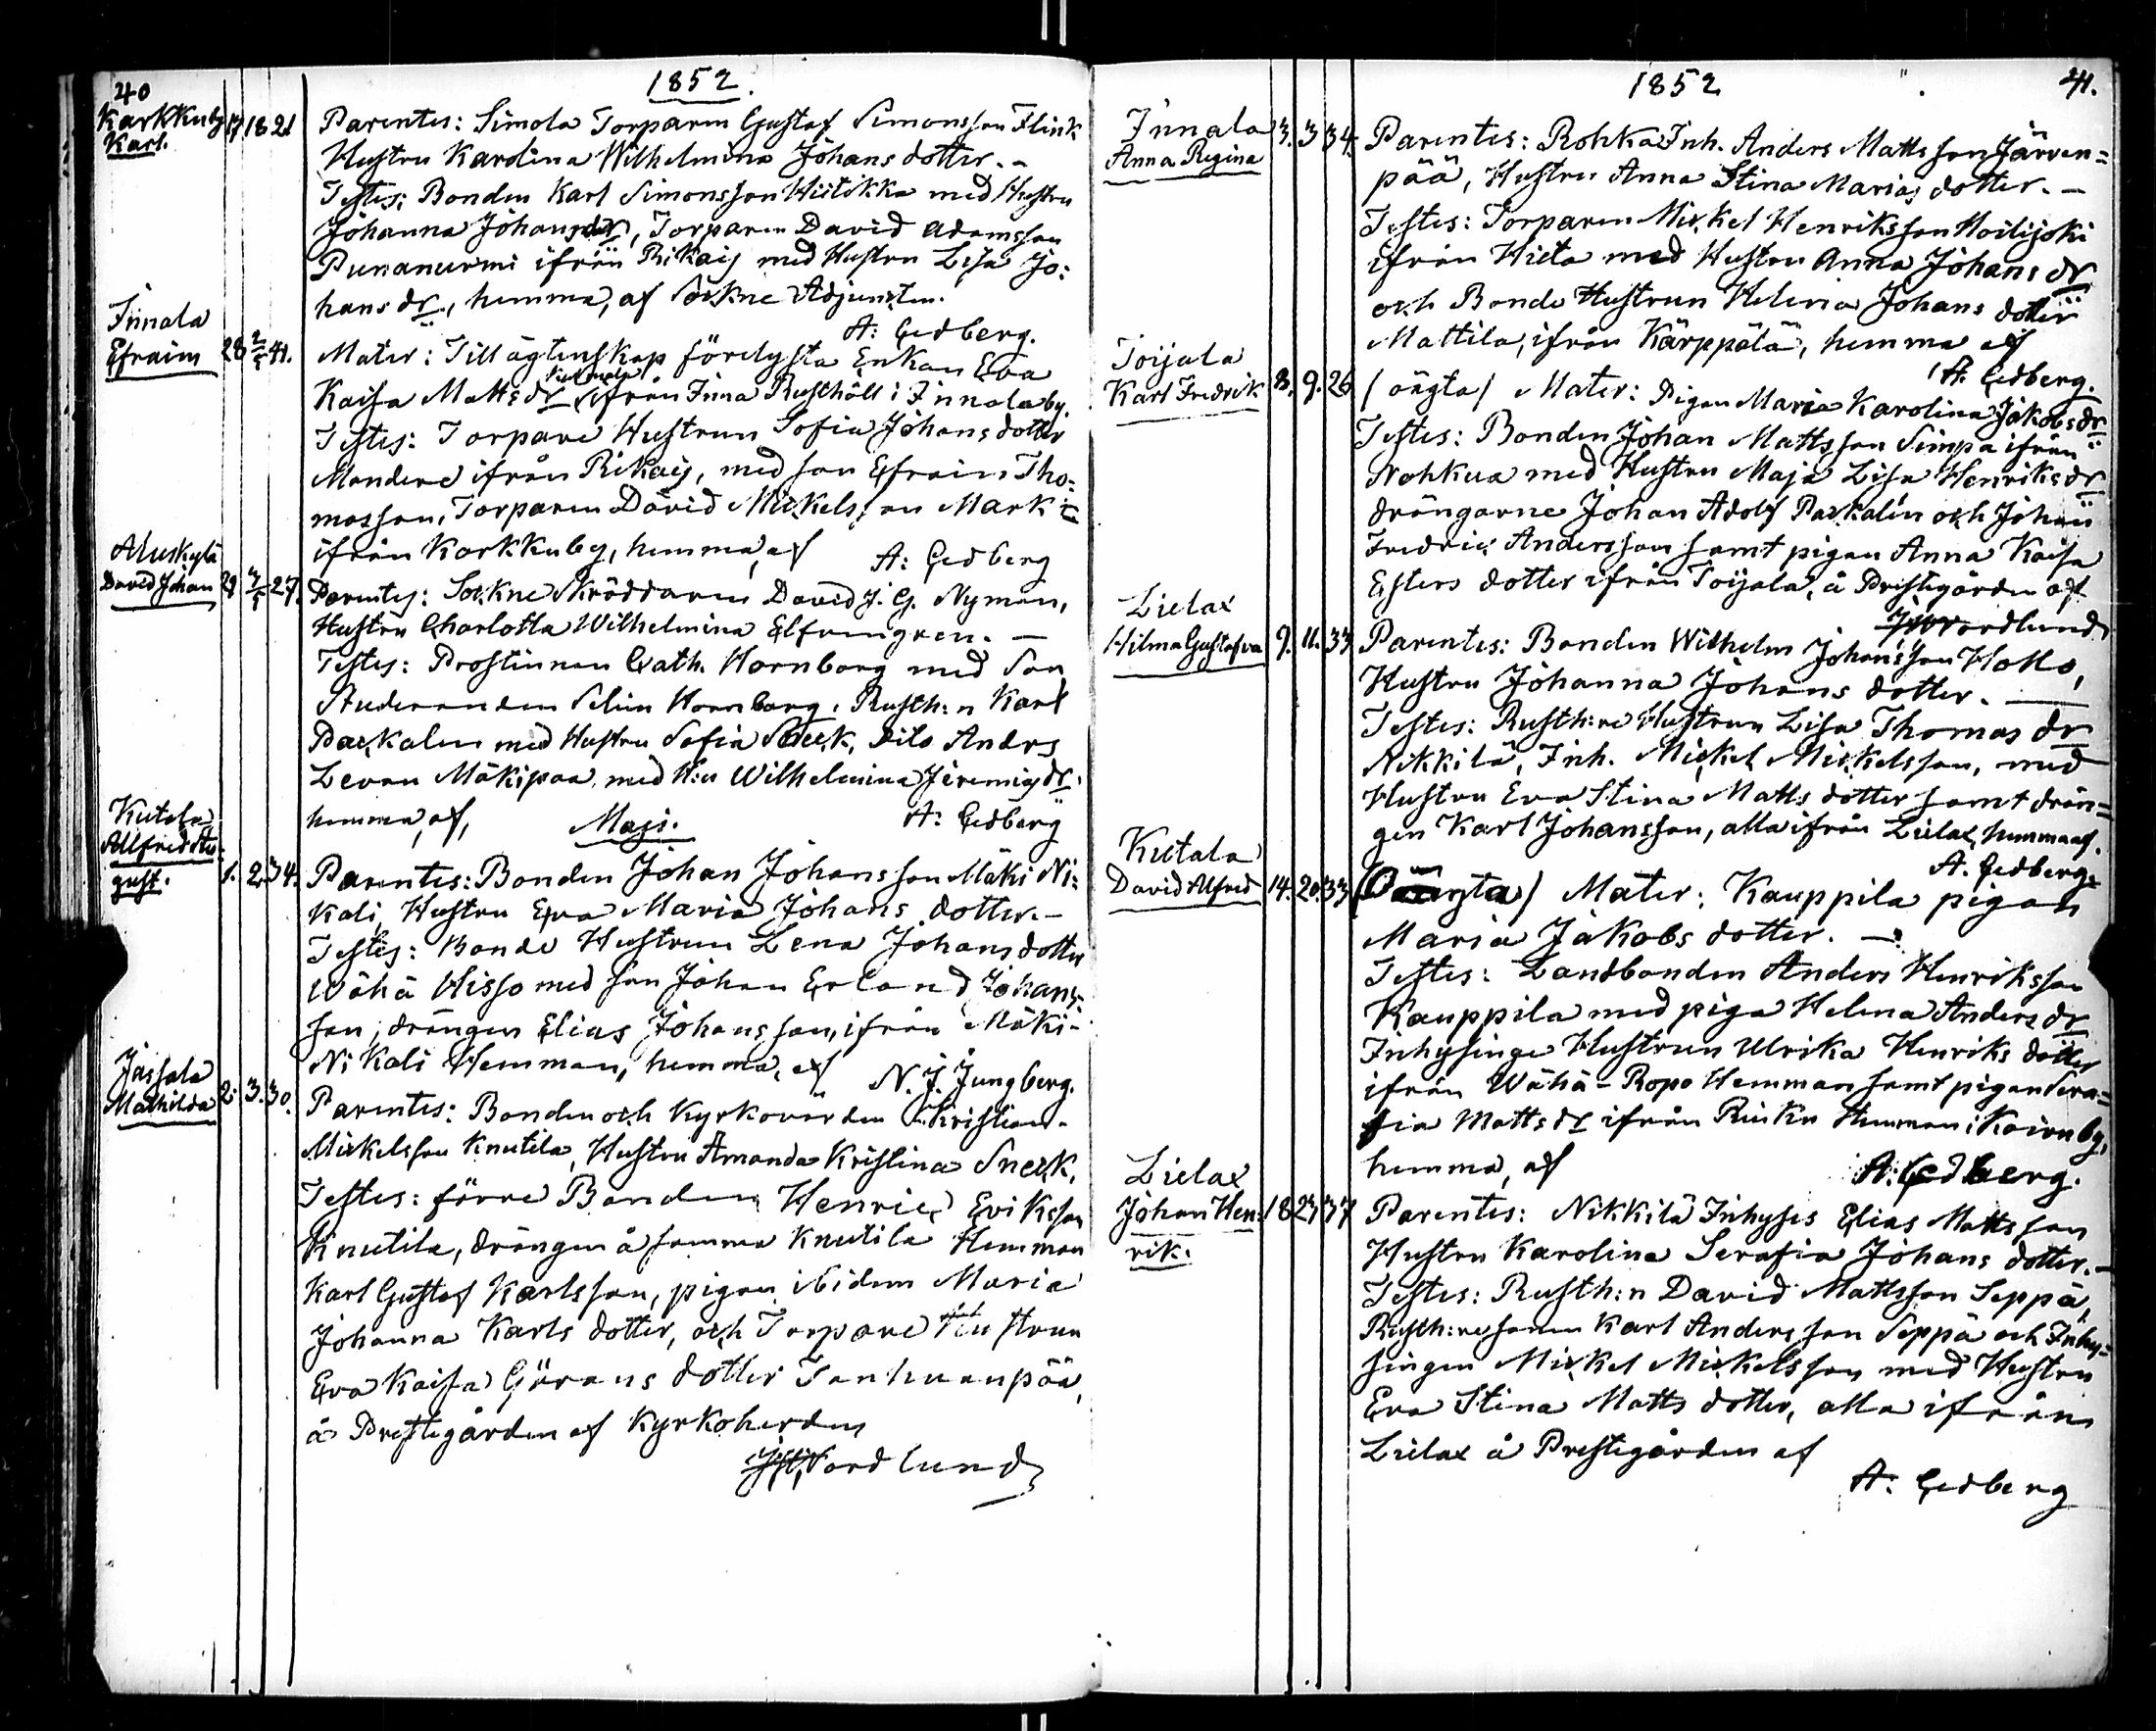 40
1852.
Karkkuby 17 18 21 Parentes: Simola Torparen Gustaf Simonsson Flink
Karl. Hustru Karolina Wilhelmina Johans dotter. –
Testes: Bonden Karl Simonsson Hiitikka med Hustru
Johanna Johansdr, Torparen David Adamsson
Punanurmi ifrån Rikais med Hustru Lisa Jo=
hans dr., hemma, af Sockne Adjuncten.
A: Cedberg.
Innala
Efraim 28 2/5 41. Mater: Till ägtenskap förelysta Enkan Eva
Kaisa Matts dr ifrån Inna Rusthåll i Innala by.
Testes: Torpare Hustrun Sofia Johans dotter
Mandere ifrån Rikais, med son Efraim Tho=
masson, Torparen David Mickelsson Mark
ifrån Karkkuby, hemma, af A: Cedberg
Aluskylä
David Johan 29 4/5 27. Parentes: Sockne Skräddaren David J. G. Nyman,
Hustru Charlotta Wilhelmina Elfvengren. –
Testes: Prostinnan Cath. Hornborg med Son
Studeranden Selim Hornborg, Rusth:n Karl
Packalen med Hustru Sofia Sneck, Dito Anders
Levan Mäkipää med H:u Wilhelmina Jeremias dr.
hemma, af, A: Cedberg
Maji.
Kutala
Alfred Au=
gust. 1. 2. 34. Parentes: Bonden Johan Johansson Mäki Ni=
kali, Hustru Eva Maria Johans dotter. –
Testes: Bonde Hustrun Lena Johans dotter
Wähä Hisso med son Johan Erland Johans=
son, drängen Elias Johansson, ifrån Mäki-
Nikali Hemman, hemma, af N. J. Jungberg.
Jassala
Mathilda 2. 3. 30. Parentes: Bonden och Kyrkovärden Kristian
Mickelsson Knutila, Hustru Amanda Kristina Sneck,
Testes: förre Bonden Henric Eriksson
Knutila, drängen å samma Knutila Hemman
Karl Gustaf Karlsson, pigan ibidem Maria
Johanna Karls dotter, och Torpare Hustrun
Eva Kaisa Görans dotter Tanhuanpää,
å Prestegården af Kyrkoherden
Nordlund
1852 41.
Innala 3. 3 34. Parentes: Rohka Inh. Anders Mattsson Järven=
Anna Regina pää, Hustru Anna Stina Marias dotter. –
Testes: Torparen Mickel Henriksson Hoilijoki
ifrån Hieta med Hustru Anna Johans dr
och Bonde Hustrun Helena Johans dotter
Mattila, ifrån Kärppälä, hemma af
A. Cedberg.
Toijala
Karl Fredrik 8. 9. 26 (oägta) Mater: Pigan Maria Karolina Jakobs dr
Testes: Bonden Johan Mattsson Simpa ifrån
Nohkua med Hustru Maja Lisa Henriks dr
drängarne Johan Adolf Packalén och Johan
Fredric Andersson samt pigan Anna Kaisa
Esters dotter ifrån Toijala, å Prestegården af
Nordlund
Lielax
Hilma Gustafva 9. 11. 33 Parentes: Bonden Wilhelm Johansson Hollo,
Hustru Johanna Johans dotter. –
Testes: Rusth:re Hustrun Lisa Thomas dr
Nikkilä, Inh. Mickel Mickelsson, med
Hustru Eva Stina Matts dotter samt drän=
gen Karl Johansson, alla ifrån Lielax, hemma af.
A. Cedberg
Kutala
David Alfred 14. 20. 33 (Oägta) Mater: Kauppila pigan
Maria Jakobs dotter. –
Testes: Landbonden Anders Henriksson
Kauppila med piga Helena Anders dr
Inhysinge Hustrun Ulrika Henriks dotter
ifrån Wähä-Ropo Hemman samt pigan Sera=
fia Matts dr ifrån Rieku Hemman i Kairu by,
hemma, af A. Cedberg.
Lielax
Johan Hen= 18 23 37 Parentes: Nikkilä Inhyses Elias Mattsson
rik. Hustru Karolina Serafia Johans dotter. –
Testes: Rusth:n David Mattsson Seppä,
Rusth:resonen Karl Andersson Seppä och Inhy=
singen Mickel Mickelsson med Hustru
Eva Stina Matts dotter, alla ifrån
Lielax å Prestegården af
A: Cedberg